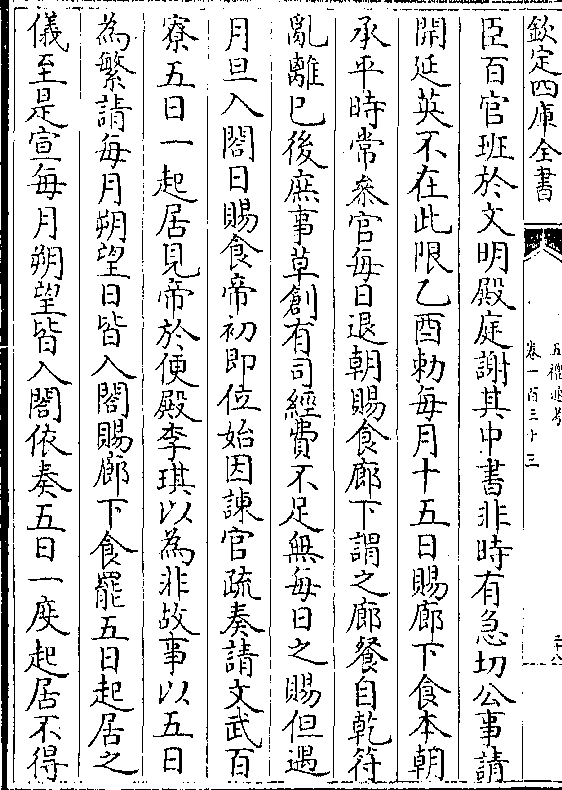 欽定四庫全書
五禮通考
卷一百三十三
三十八
臣百官班於文明殿庭謝其中書非時有急切公事請
開延英不在此限乙酉勅每月十五日賜廊下食本朝
承平時常叅官每日退朝賜食廊下謂之廊餐自乾符
亂離已後庶事草創有司經費不足無每日之賜但遇
月旦入閤日賜食帝初即位始因諫官疏奏請文武百
寮五日一起居見帝於便殿李琪以為非故事以五日
為繁請每月朔望日皆入閤賜廊下食罷五日起居之
儀至是宣每月朔望皆入閤依奏五日一度起居不得